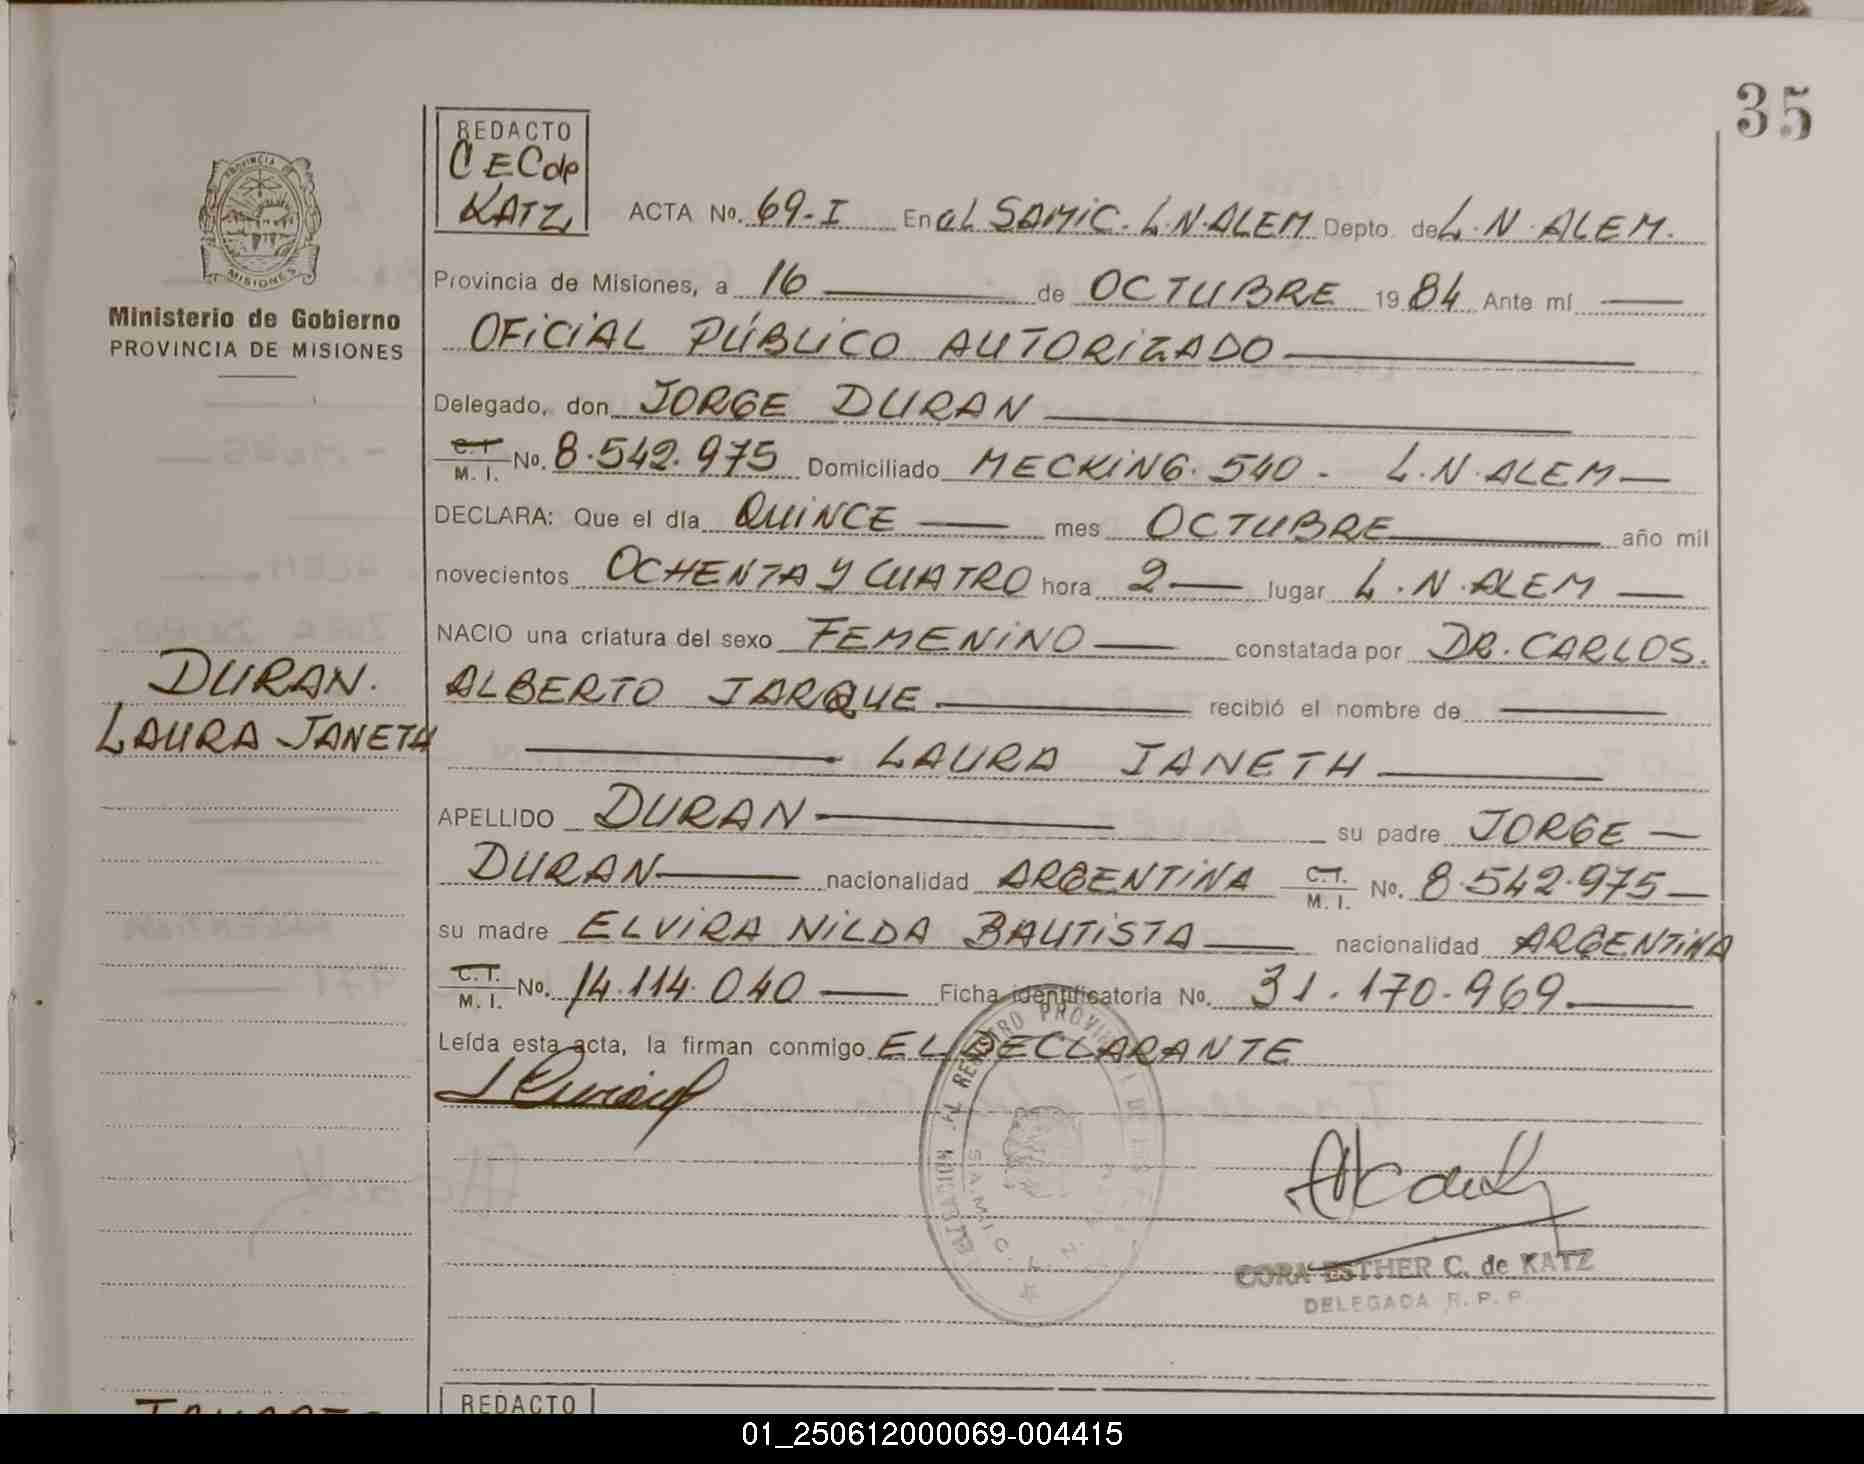 35
REDACTO
CECdp
KATZ
PROVINCIA DE
MISIONES
Ministerio de Gobierno
PROVINCIA DE MISIONES
ACTA No. 69-I En el SAMIC. L.N.ALEM Depto. de L.N.ALEM.
Provincia de Misiones, a 16 de OCTUBRE 19 84 Ante mí
OFICIAL PÚBLICO AUTORIZADO
Delegado, don JORGE DURAN
C.I. M. I. No. 8.542.975 Domiciliado MECKING. 540 - L.N.ALEM
DECLARA: Que el día QUINCE mes OCTUBRE año mil
novecientos OCHENTA Y CUATRO hora 2 lugar L.N.ALEM
NACIO una criatura del sexo FEMENINO constatada por DR. CARLOS.
ALBERTO JARQUE recibió el nombre de
LAURA JANETH
DURAN.
LAURA JANETH
APELLIDO DURAN su padre JORGE
DURAN nacionalidad ARGENTINA C.I. M. I. No. 8.542.975
su madre ELVIRA NILDA BAUTISTA nacionalidad ARGENTINA
C.I. M. I. No. 14.114.040 Ficha identificatoria No. 31.170.969.
Leída esta acta, la firman conmigo EL DECLARANTE
CORA ESTHER C. de KATZ
DELEGADA R. P. P.
REDACTO
01_250612000069-004415